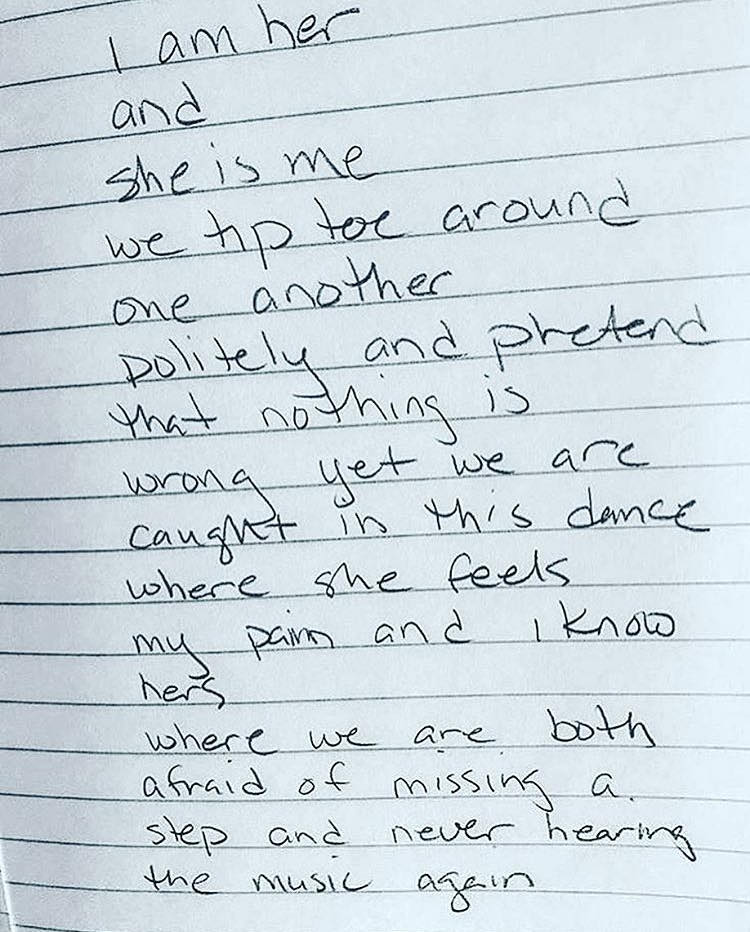 I am her
and
she is me
we tip toe around
one another
politely and pretend
that nothing is
wrong yet we are
caught in this dance
where she feels
my pain and I know
hers
where we are both
afraid of missing a
step and never hearing
the music again